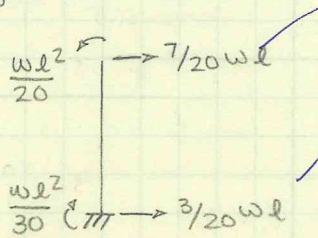 wl²/20 7/20 wl
wl²/30 3/20 wl